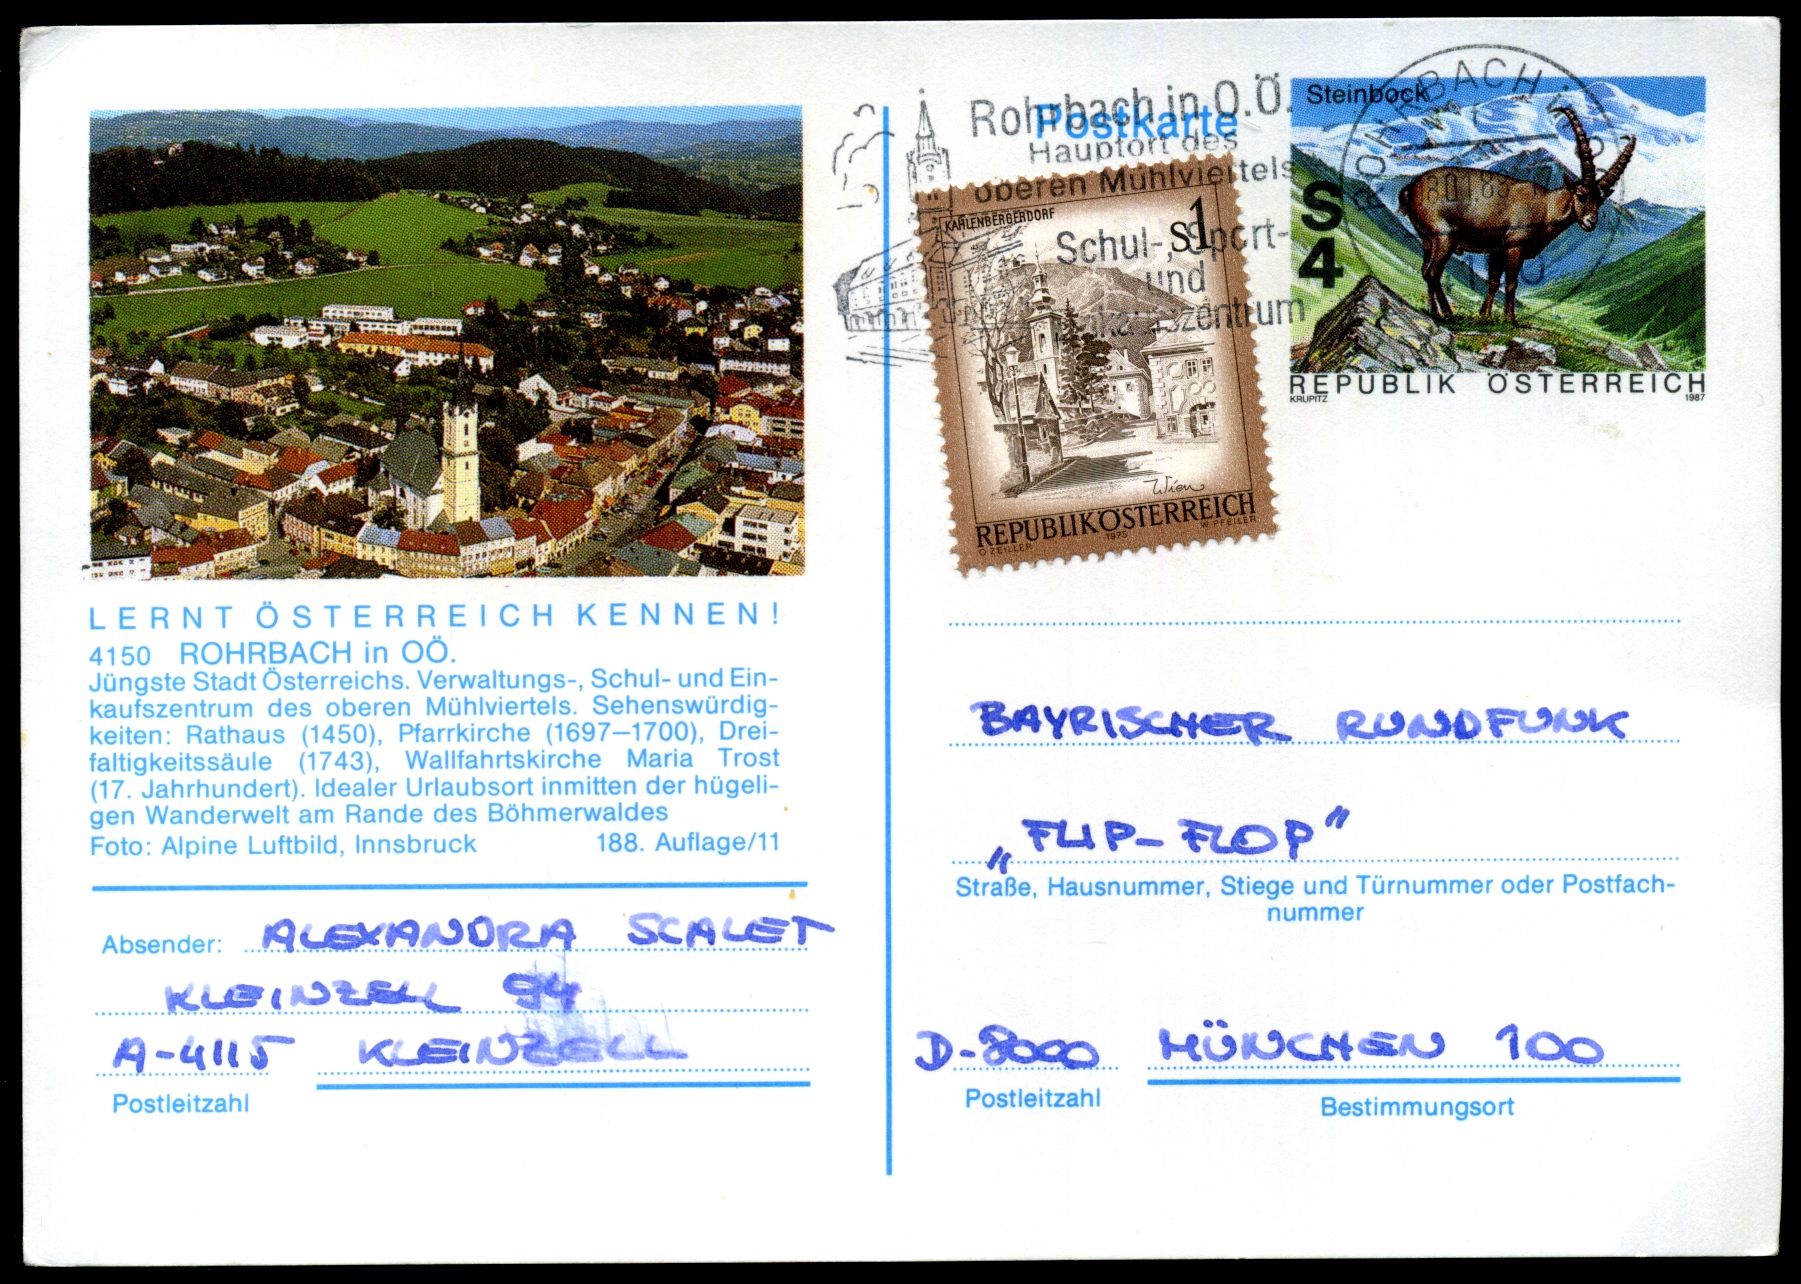 Postkarte
Rohrbach in O.Ö.
Hauptort des
oberen Mühlviertels
Schul-, Sport-
und
Steinbock
S
4
REPUBLIK ÖSTERREICH
KRUPITZ 1987
KAHLENBERGERDORF
S1
Wien
REPUBLIK ÖSTERREICH
O ZEILLER 1975 W. PFEILER
LERNT ÖSTERREICH KENNEN!
4150 ROHRBACH in OÖ.
Jüngste Stadt Österreichs. Verwaltungs-, Schul- und Ein-
kaufszentrum des oberen Mühlviertels. Sehenswürdig-
keiten: Rathaus (1450), Pfarrkirche (1697–1700), Drei-
faltigkeitssäule (1743), Wallfahrtskirche Maria Trost
(17. Jahrhundert). Idealer Urlaubsort inmitten der hügeli-
gen Wanderwelt am Rande des Böhmerwaldes
Foto: Alpine Luftbild, Innsbruck 188. Auflage/11
Absender: ALEXANDRA SCALET
KLEINZELL 94
A-4115 KLEINZELL
Postleitzahl
BAYRISCHER RUNDFUNK
„FLIP-FLOP"
Straße, Hausnummer, Stiege und Türnummer oder Postfach-
nummer
D-8000 MÜNCHEN 100
Postleitzahl
Bestimmungsort